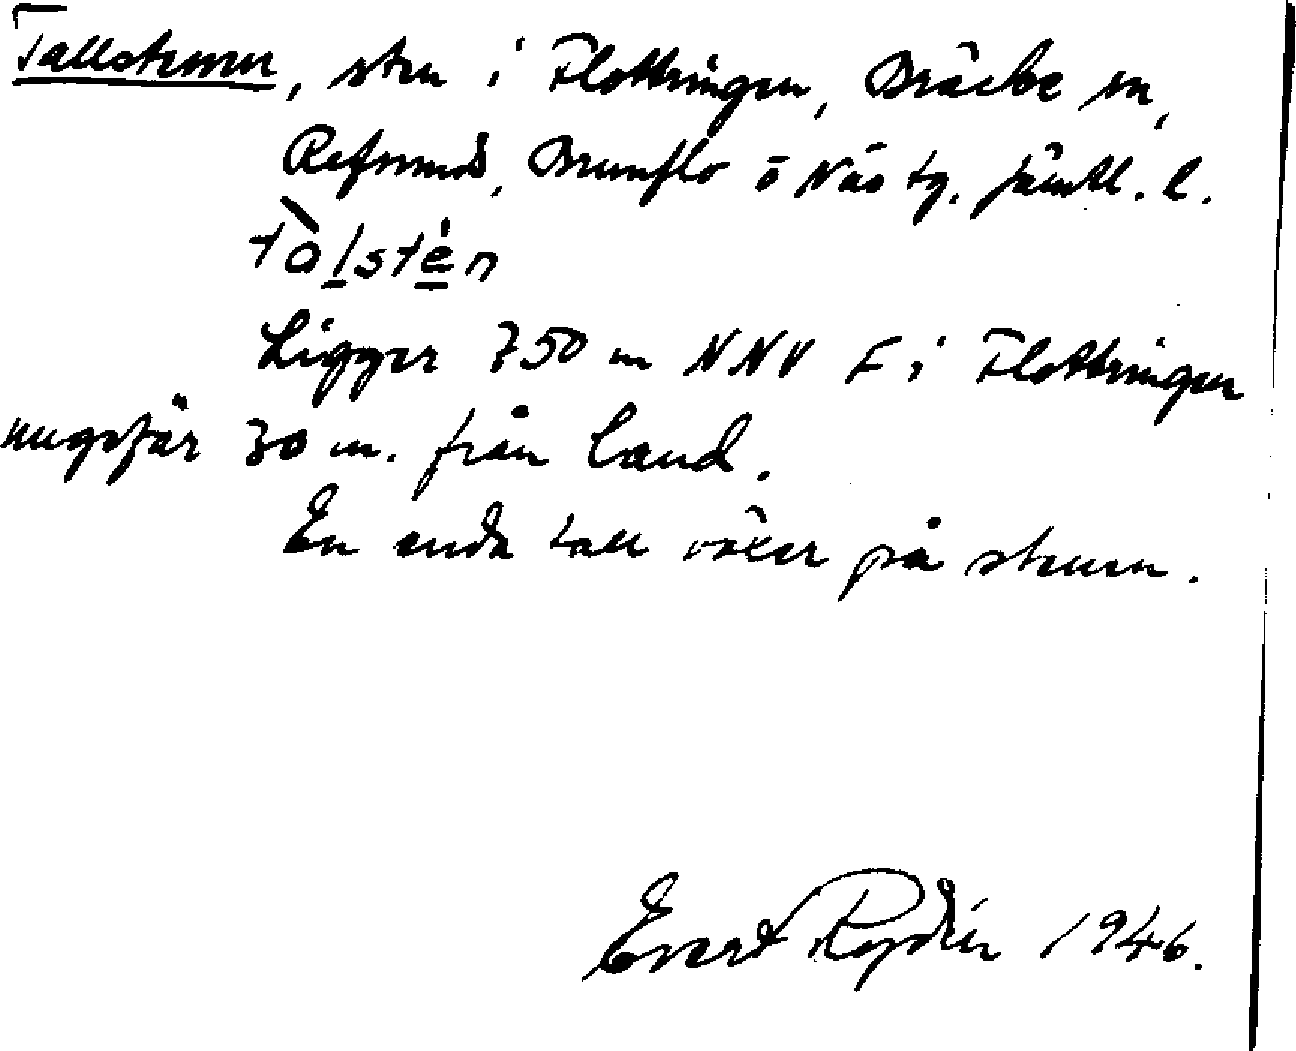 Tallstenen, sten i Flottringen, Bräcke sn,
Refsunds, Brunflo o Näs tg. Jämtl. l.
tàlstén
Ligger 750 m NNV F i Flottringen
ungefär 30 m. från land.
En enda tall växer på stenen.
Evert Rydén 1946.